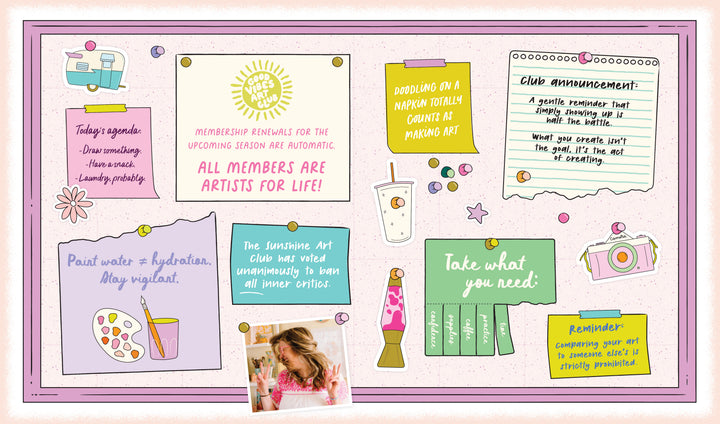 Today's agenda:
- Draw something.
- Have a snack.
- Laundry, probably.
GOOD
VIBES
ART
CLUB
MEMBERSHIP RENEWALS FOR THE
UPCOMING SEASON ARE AUTOMATIC.
ALL MEMBERS ARE
ARTISTS FOR LIFE!
DOODLING ON A
NAPKIN TOTALLY
COUNTS AS
MAKING ART
Club announcement:
A gentle reminder that
simply showing up is
half the battle.
What you create isn't
the goal, it's the act
of creating.
Paint water ≠ hydration.
Stay vigilant.
The Sunshine Art
Club has voted
unanimously to ban
all inner critics.
Take what
you need:
confidence
supplies
coffee
practice
time
Reminder:
Comparing your art
to someone else's is
strictly prohibited.